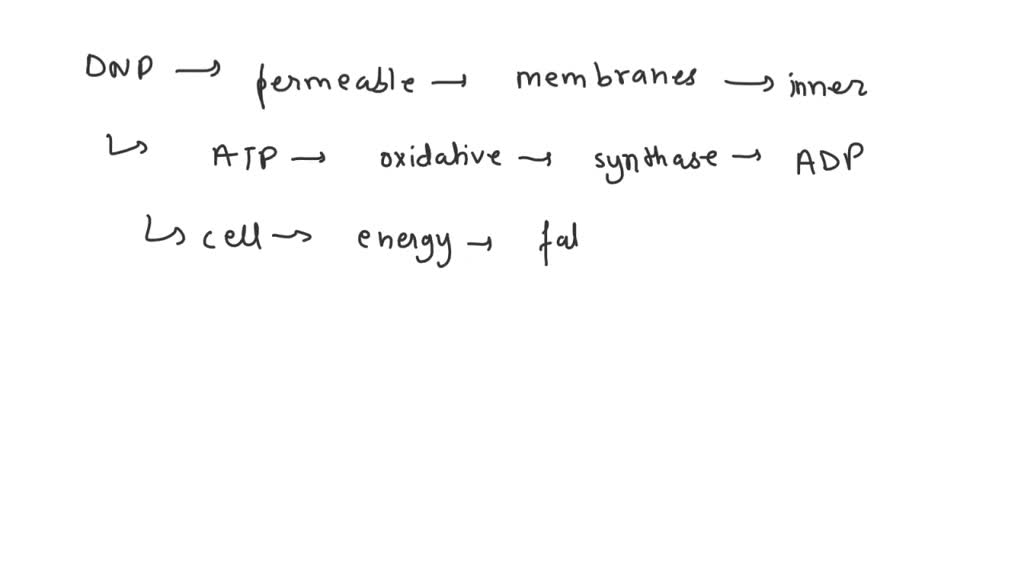 DNP → permeable → membranes → inner
↳ ATP → oxidative → synthase → ADP
↳ cell → energy → fal